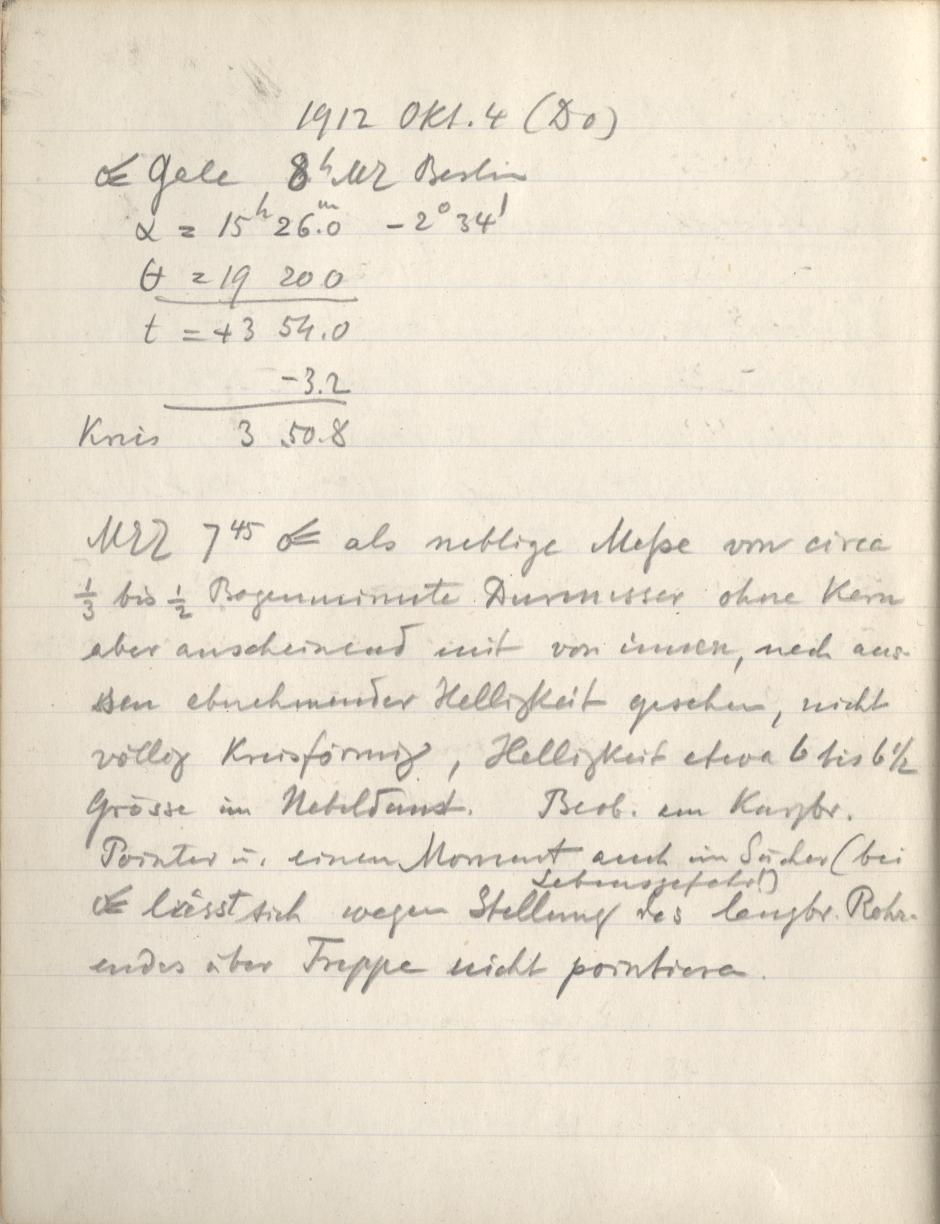 1912 Okt. 4 (Do)
☄ Gale 8ʰ MZ Berlin
α = 15ʰ 26ᵐ.0 -2° 34'
θ = 19 20 0
t = +3 54.0
-3.2
Kreis 3 50.8
MEZ 7⁴⁵ ☄ als neblige Masse von circa
⅓ bis ½ Bogenminute Durmesser ohne Kern
aber anscheinend mit von innen, nach aus-
sen abnehmender Helligkeit gesehen, nicht
völlig Kreisförmig, Helligkeit etwa 6 bis 6½
Grösse im Nebeldunst. Beob. am Kurzbr.
Pointer u. einen Moment auch im Sucher (bei
Lebensgefahr!)
☄ lässt sich wegen Stellung des langbr. Rohr-
endes über Treppe nicht pointieren.